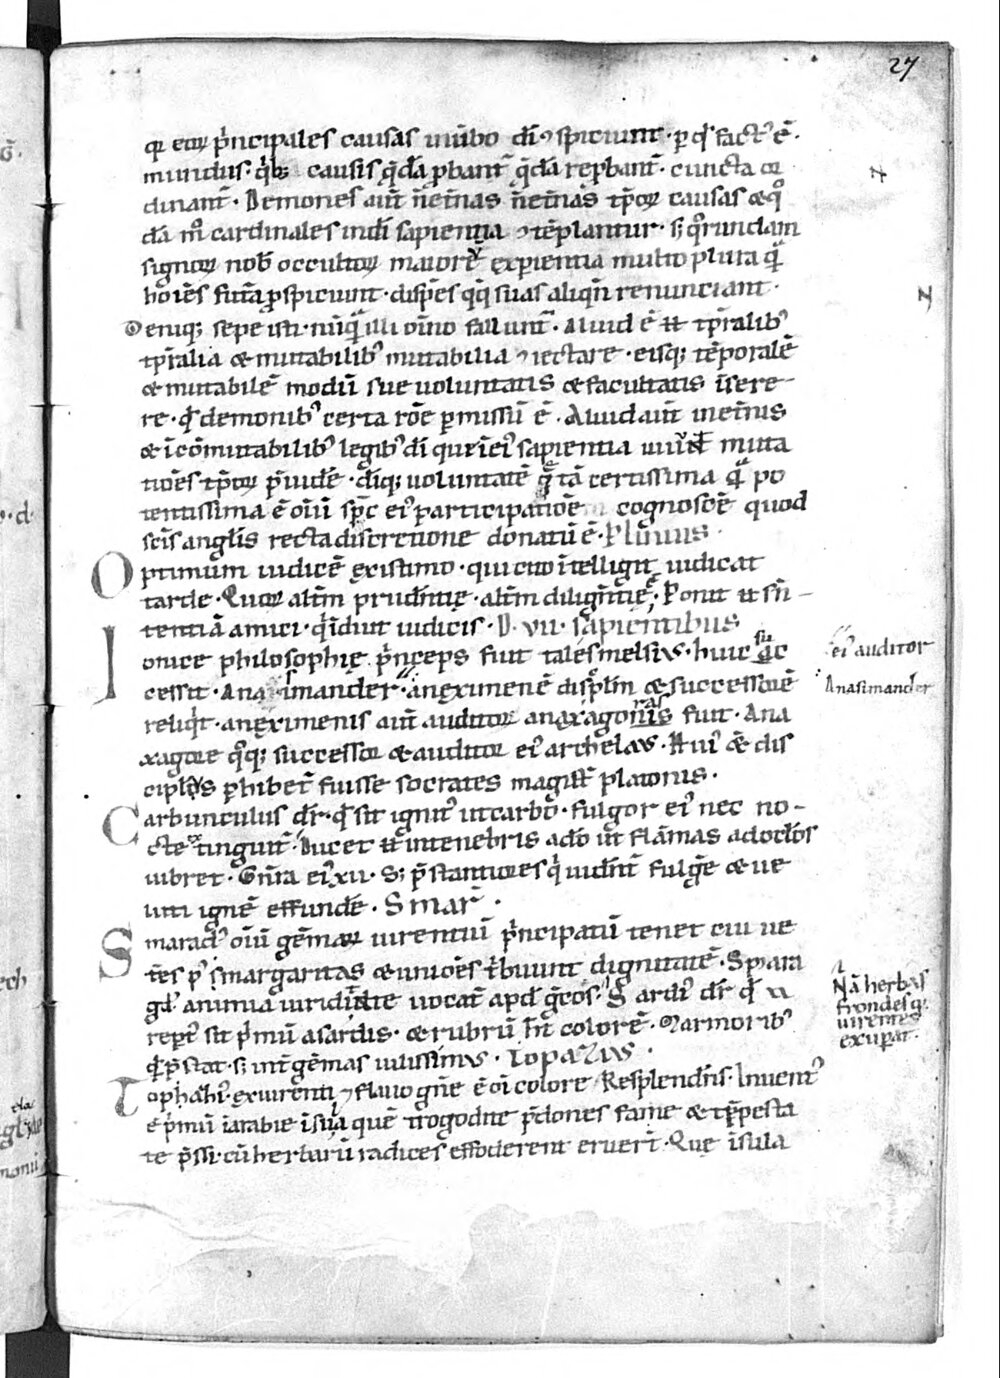 27
qr eorum p̄ncipales causas in uerbo dī ɔspiciunt · p qd̄ fact᷒ ē ·
mundus · qˈb; causis q̄dā pbant q̄dā repbant · cuncta or
dinant · Demones aut̄ n̄ et̄nas tp̄or causas & qͦ
dā mͦ cardinales in dī sapientia ɔtēplantur · s; qͦrundam
signor nob̄ occultor maiore exꝑientia multo plura qͣ
hoīes futura pspiciunt · disp̄es qͦq; suas aliqn̄ renunciant ·
Deniq; sepe isti · nūqͣ illi oīno fallunt̄ · Aliud ē tp̄ralib᷒
tp̄ralia & mutabilib᷒ mutabilia ɔiectare · eisq; tēporalē
& mutabilē modū sue uoluntatis & facultatis īsere
re · qd̄ demonib᷒ certa rōe pmissū ē · Aliud aut̄ in et̄nis
& īcōmutabilib᷒ legib᷒ dī que ī ei᷒ sapientia uiuunt muta
tiōes tp̄or p̄uidē · dīq; uoluntatē q̄ tā certissima qͣ po
tentissima ē oīū sp̄c ei᷒ participatiōe cognoscē quod
sc̄is angl̄is recta discretione donatū ē · Plinius ·
Optimum iudicē existimo · qui cito ītelligit iudicat
tarde · Quor altm̄ prudn̄tie · altm̄ dilign̄tie · Ponit sn̄
tentiā amici · qˈd iudicis · D · vii · sapientibus
Ionice philosophie p̄nceps fuit tales melsius · huic suc
cessit · Anaximander · aneximenē discpl̄in & successorē
reliqˈt · aneximenis aut̄ auditor anaxagoras fuit · Ana
xagore qͦq; successor & auditor ei᷒ archelaus · Hui᷒ & dis
cipls phibet̄ fuisse socrates magist̄ platonis ·
Carbunculus dr̄ · qd̄ sit ignit᷒ ut carbo · fulgor ei᷒ nec no-
cte extinguit̄ · Lucet in tenebris adō ut flāmas ad oclōs
uibret · Gn̄a ei᷒ xii · S; p̄stantiores qˈ uidn̄t fulgē & ue
luti ignē effundē · Smar̄ ·
Smaragd᷒ oīū gēmar uirentiū p̄ncipatū tenet cui ue
tēs p᷒ margaritas & uniōes tˈbuunt dignitatē · Smara
gd᷒ a nimia uiriditate uocat̄ apd̄ gecos · Sardi᷒ dr̄ qd̄
repert᷒ sit pˈmū a sardis · & rubrū ht̄ colorē · Marmorib᷒
qd̄ p̄stat · s; int̄ gēmas uilissimus · Topazius ·
Topazi᷒ ex uirenti flauo gn̄e ē oī colore Resplendn̄s · Inuent᷒
ē pˈmū ī arabie īsula quē trogodite p̄dones fame & tēpesta
te p̄ssi · cū herbarū radices effoderent eruer̄t · Que īsula
ei᷒ auditor
Anasimander
Nā herbas
frondes q;
uirentes
exupat ·